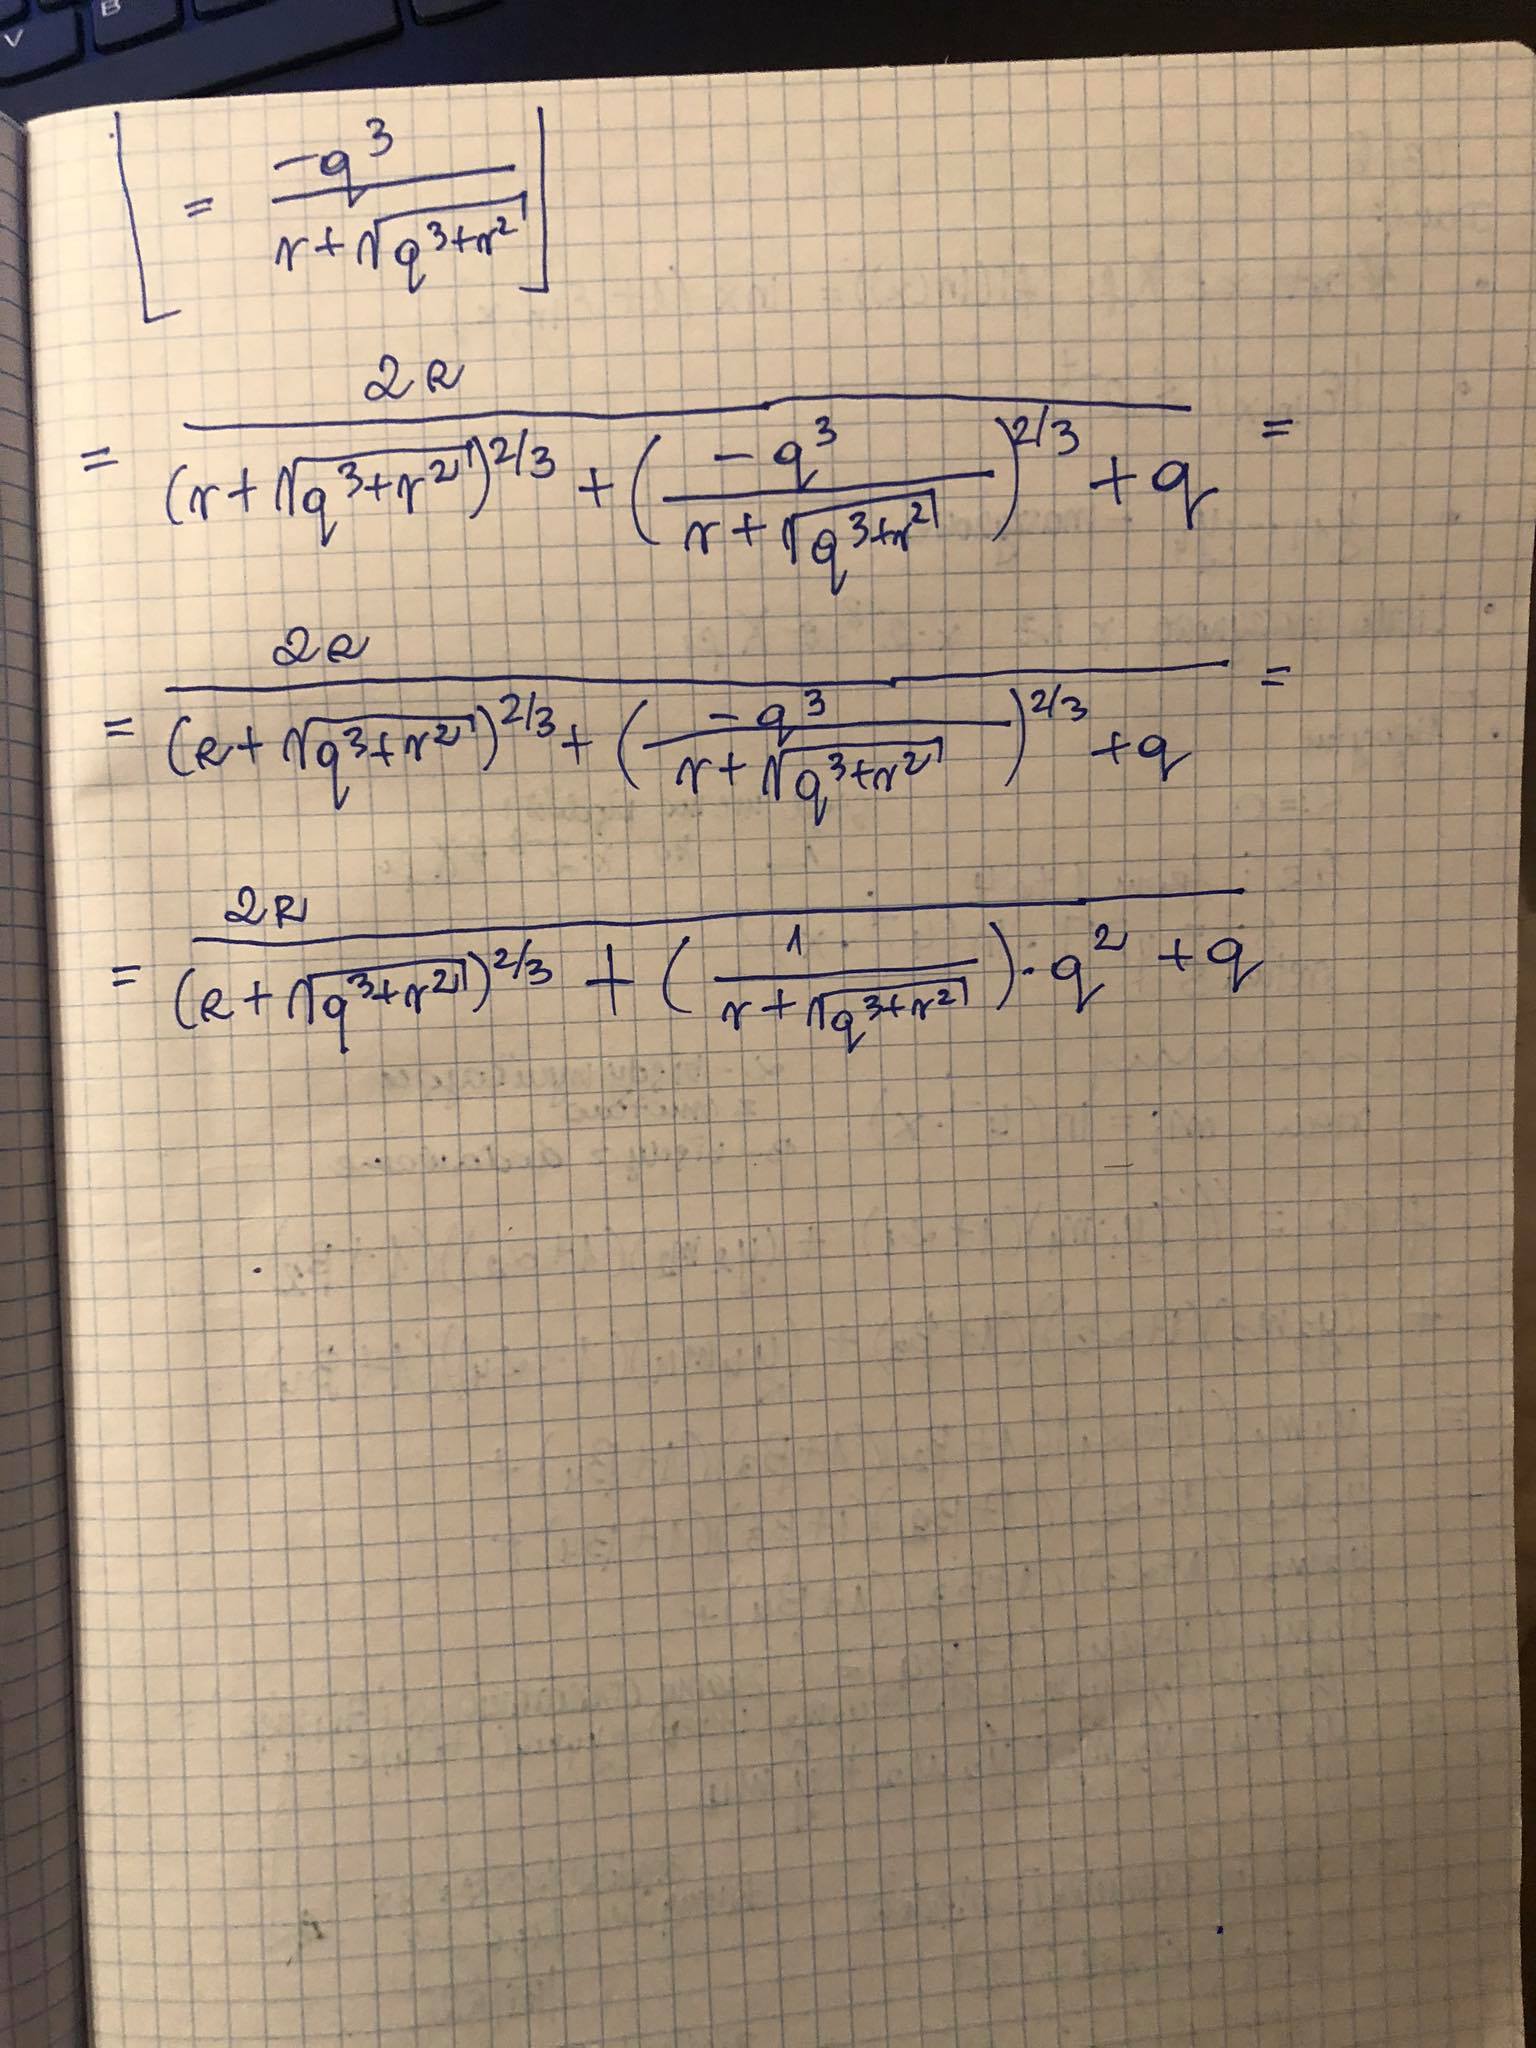 V B
[ = \frac{-q^3}{r+\sqrt{q^3+r^2}} ]
= \frac{2R}{(r+\sqrt{q^3+r^2})^{2/3} + (\frac{-q^3}{r+\sqrt{q^3+r^2}})^{2/3} + q} =
= \frac{2R}{(R+\sqrt{q^3+r^2})^{2/3} + (\frac{-q^3}{r+\sqrt{q^3+r^2}})^{2/3} + q} =
= \frac{2R}{(R+\sqrt{q^3+r^2})^{2/3} + (\frac{1}{r+\sqrt{q^3+r^2}}) \cdot q^2 + q}